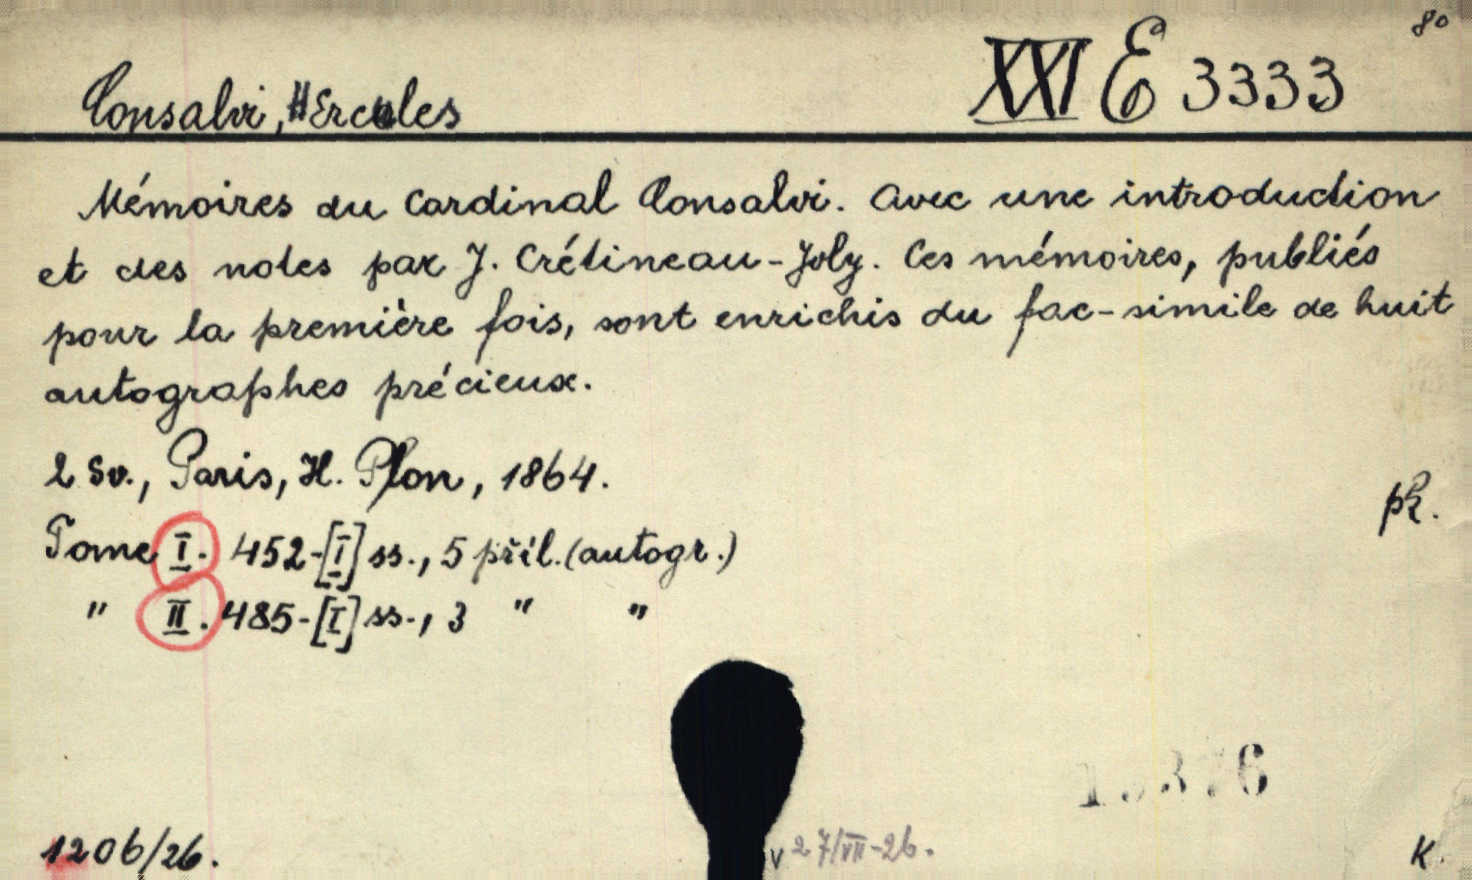 8°
XXI E 3333
Consalvi, Hercules
Mémoires du Cardinal Consalvi. Avec une introduction
et des notes par J. Crétineau-Joly. Ces mémoires, publiés
pour la première fois, sont enrichis du fac-simile de huit
autographes précieux.
2 sv., Paris, H. Plon, 1864.
př.
Tome I. 452-[I] ss., 5 příl. (autogr.)
" II. 485-[I] ss., 3 " "
1206/26.
v 27/VII-26.
K.